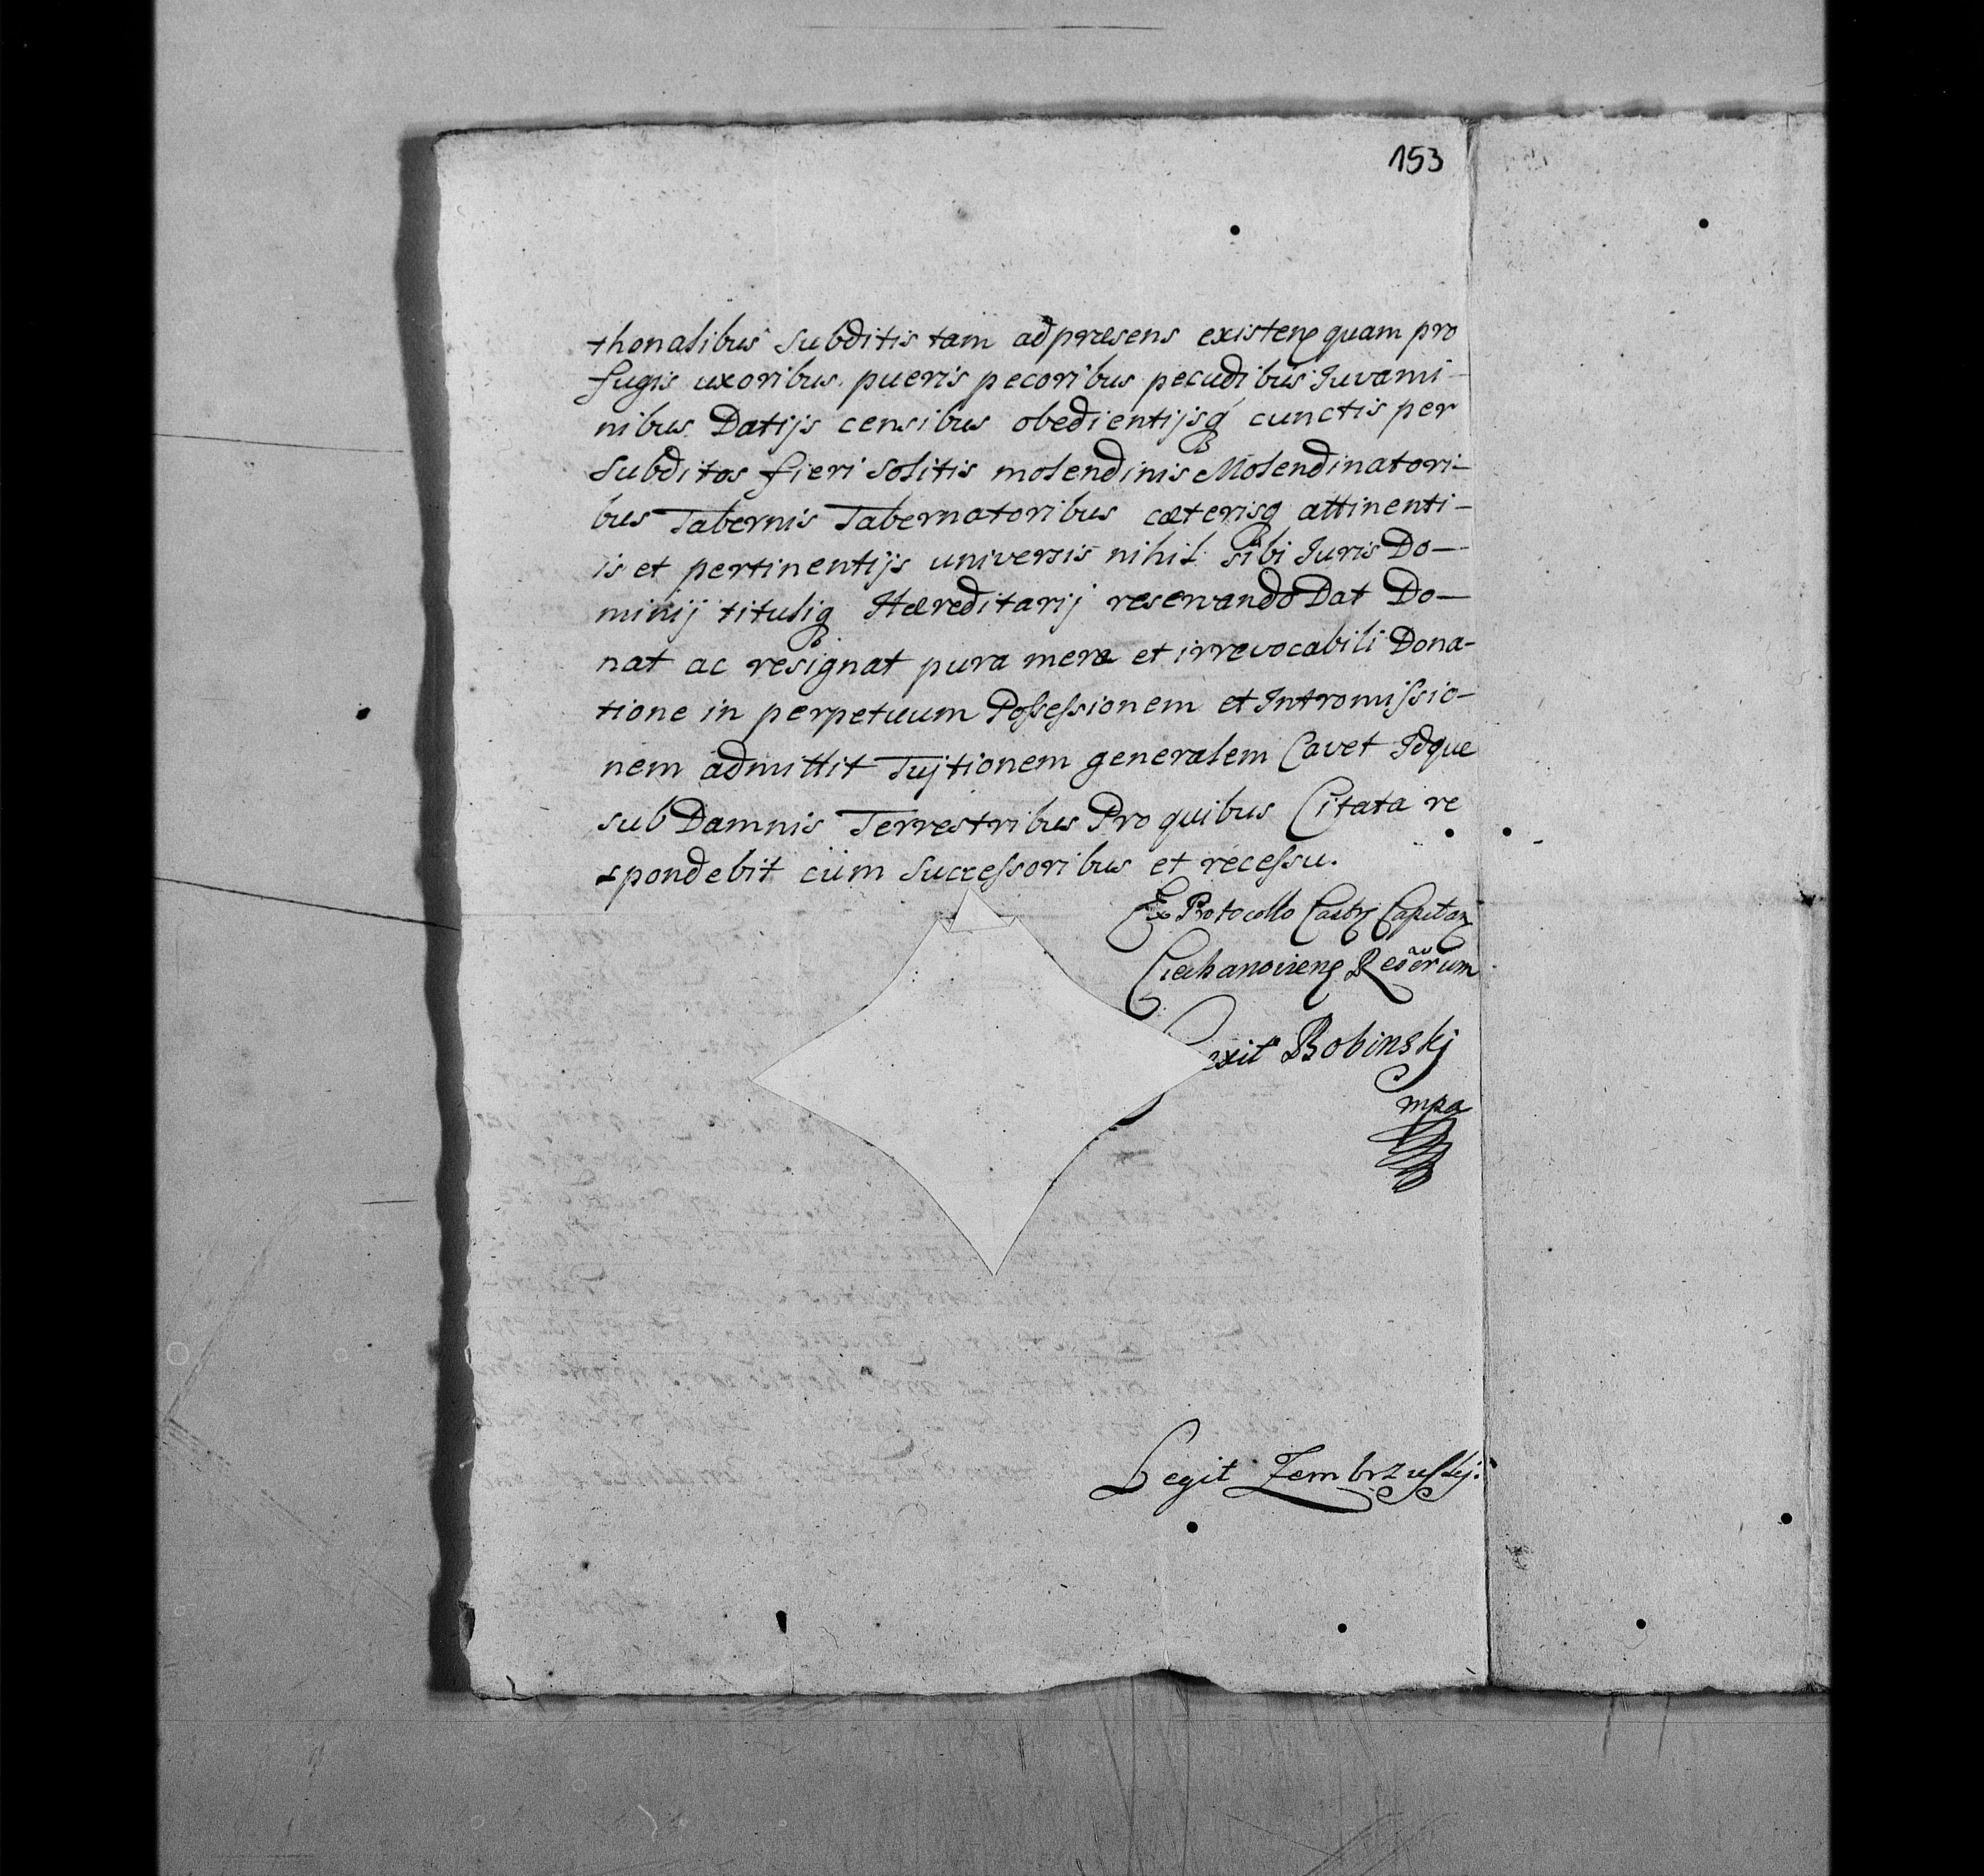 153
thonalibus subditis tam ad præsens existenꝫ quam pro
fugis uxoribus pueris pecoribus pecudibus Iuvami-
nibus Datijs censibus obedientijsqꝫ cunctis per
subditos fieri solitis molendinis Molendinatori-
bus Tabernis Tabernatoribus cæterisqꝫ attinenti-
is et pertinentijs universis nihil sibi Iuris Do-
minij tituliqꝫ Hæreditarij reservando Dat Do-
nat ac resignat pura mera et irrevocabili Dona-
tione in perpetuum Possessionem et Intromissio-
nem admittit Tujtionem generalem Cavet Idque
sub Damnis Terrestribus Pro quibus Citata re
spondebit cum successoribus et recessu.
Ex Protocollo Castrj Capitanꝫ
Ciechanovienꝫ Reſerum
exit Bobinskj
mpa
Legit Zembrzuskj.